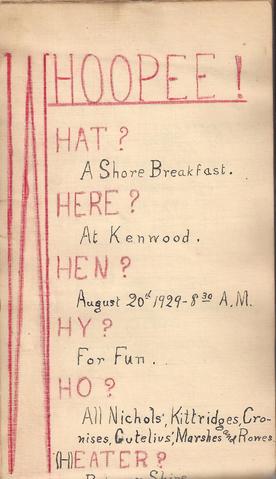 WHOOPEE!
HAT?
A Shore Breakfast.
HERE?
At Kenwood.
HEN?
August 20d 1929-8 30 A.M.
HY?
For Fun.
HO?
All Nichols', Kittridges, Cro-
nises, Gutelius', Marshes and Rowes.
(H)EATER?